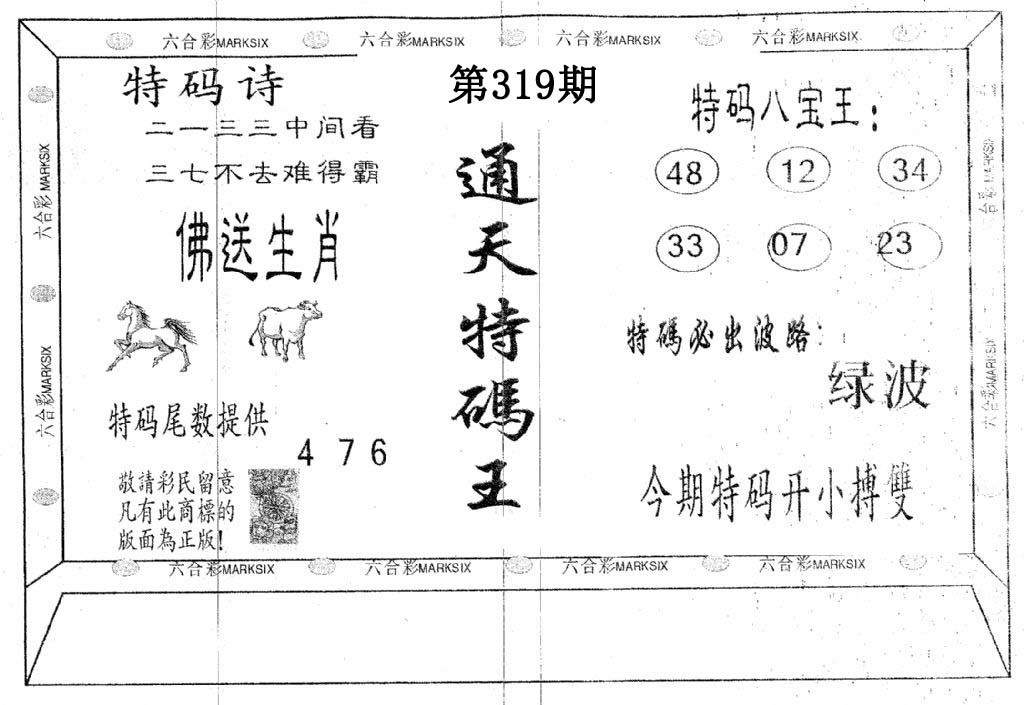 六合彩MARKSIX 六合彩MARKSIX 六合彩MARKSIX 六合彩MARKSIX
特码诗
二一三三中间看
三七不去难得霸
佛送生肖
特码尾数提供
4 7 6
敬請彩民留意
凡有此商標的
版面為正版!
第319期
通天特碼王
特码八宝王:
48 12 34
33 07 23
特碼必出波路:
绿波
今期特码开小搏雙
六合彩MARKSIX
六合彩MARKSIX
六合彩MARKSIX
六合彩MARKSIX
六合彩MARKSIX 六合彩MARKSIX 六合彩MARKSIX 六合彩MARKSIX